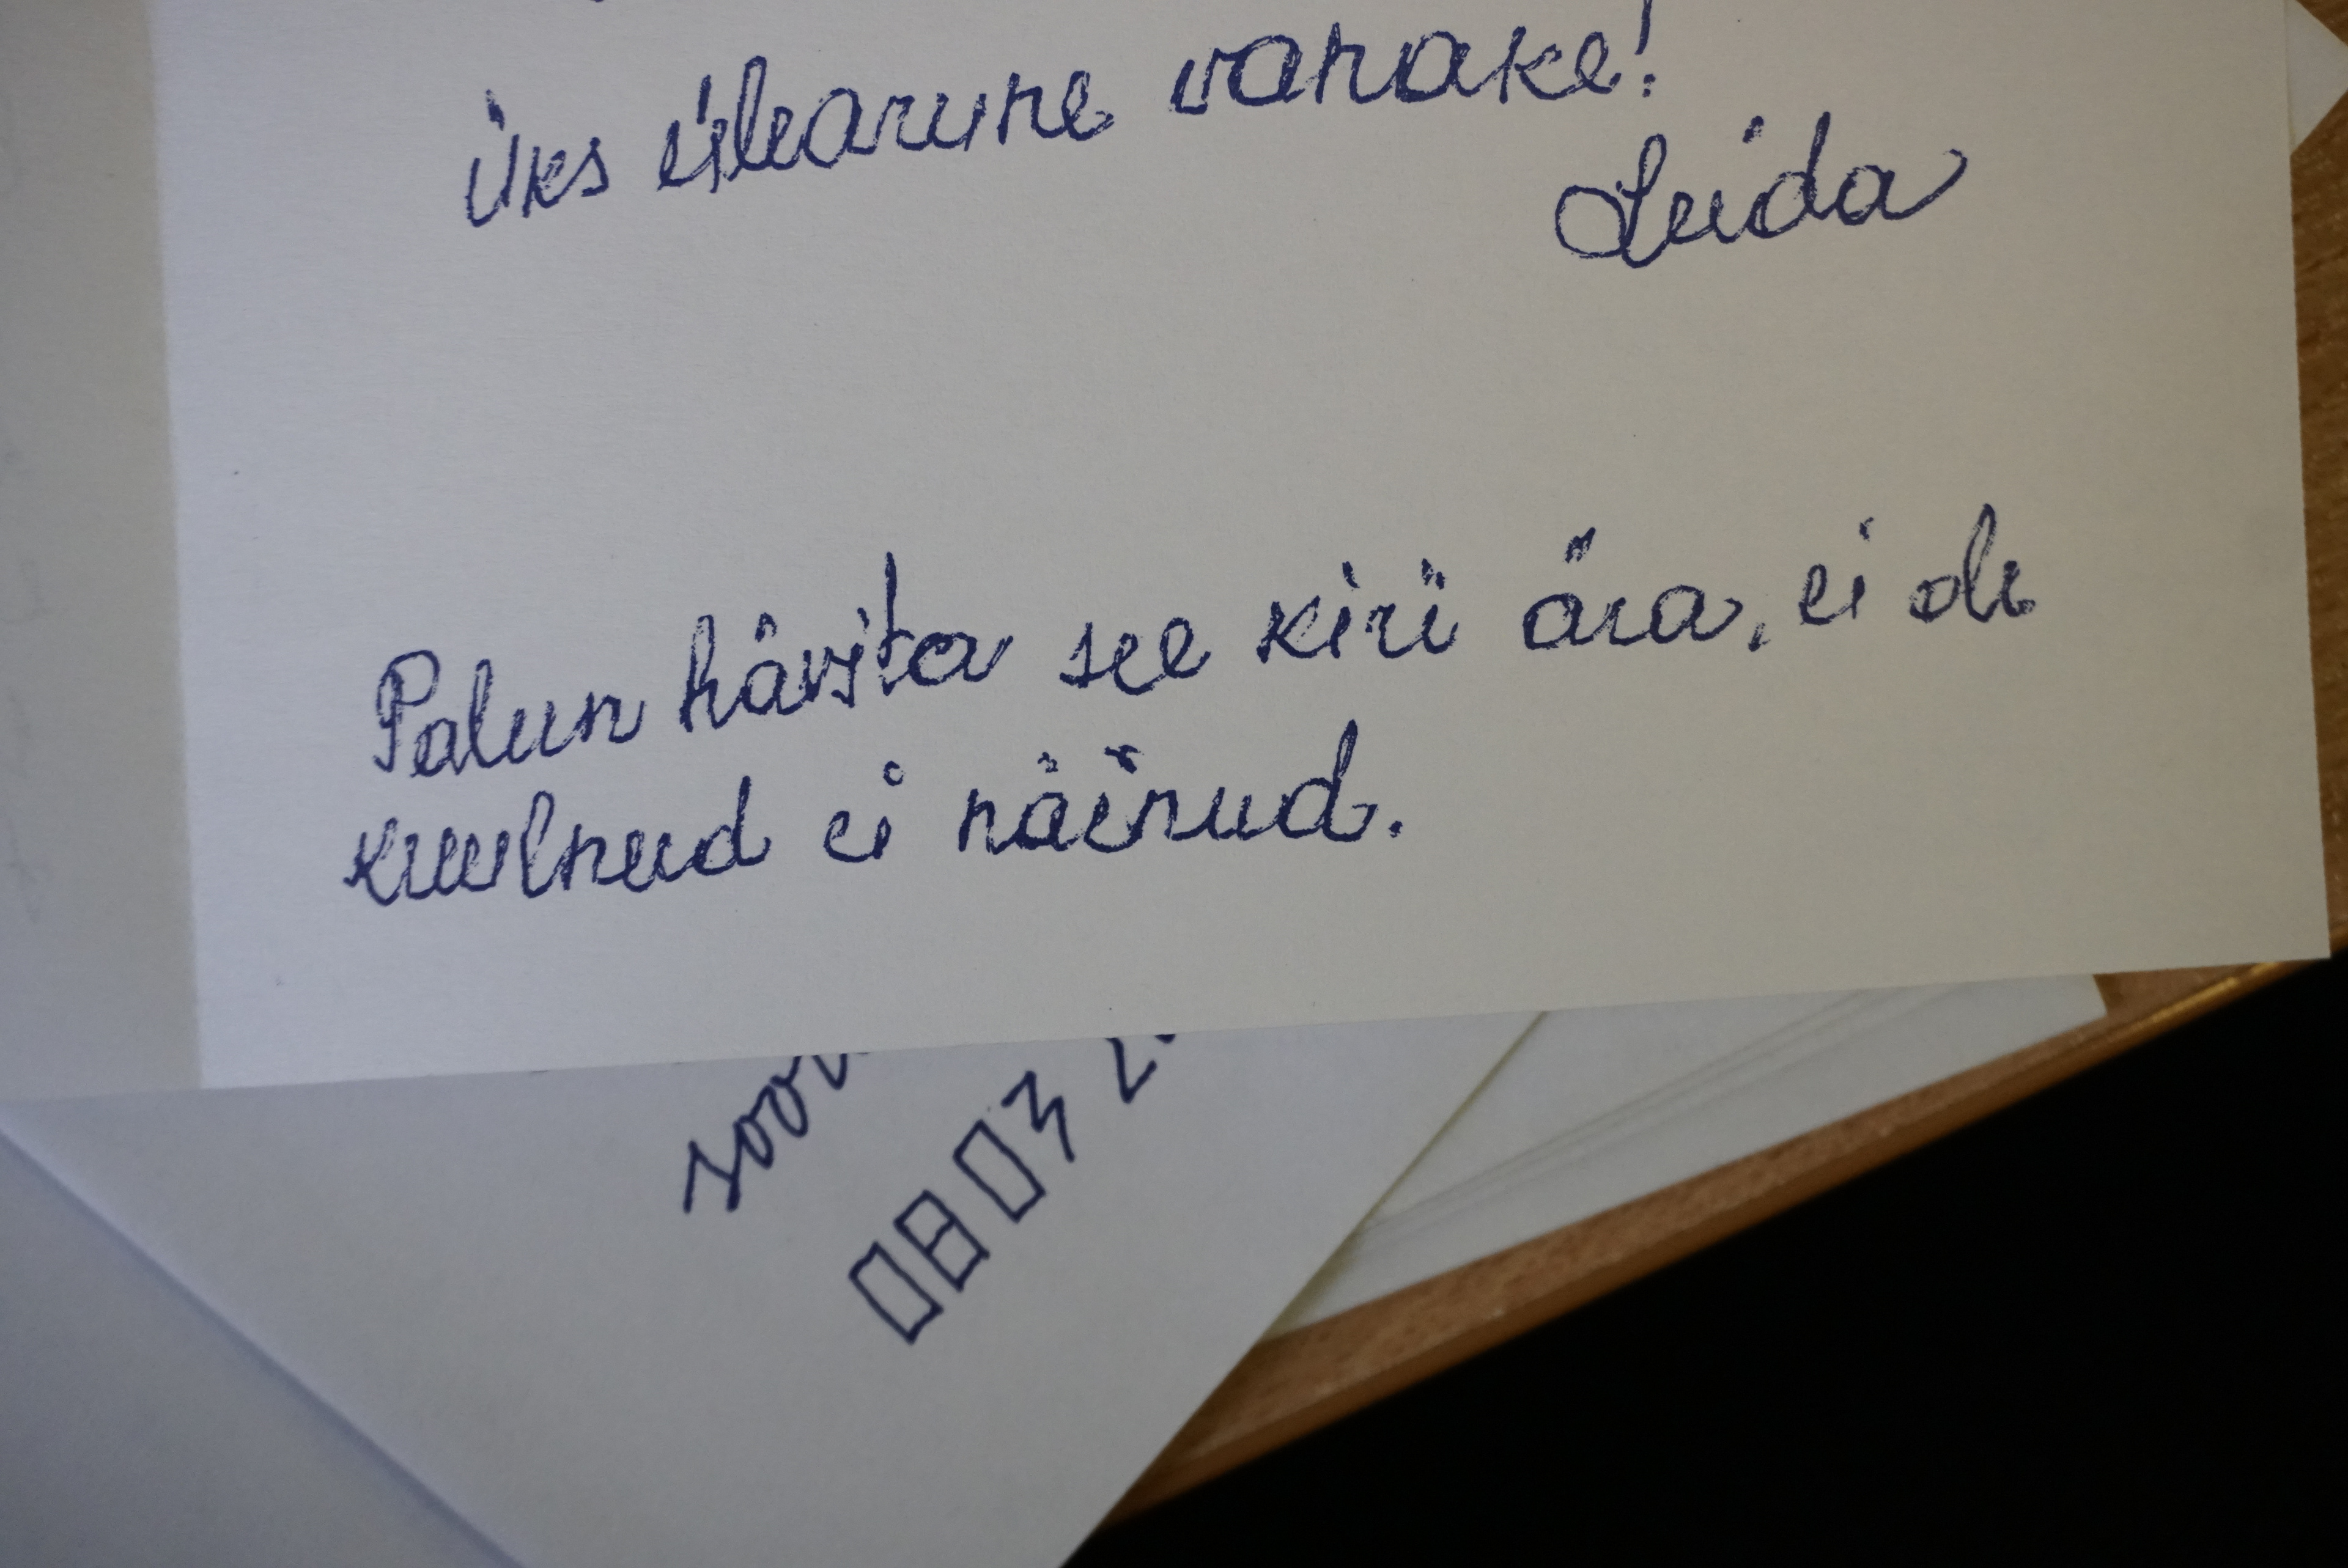 Üks ülearune vanake!
Leida
Palun hävita see kiri ära, ei ole
kuulnud ei näinud.
0803